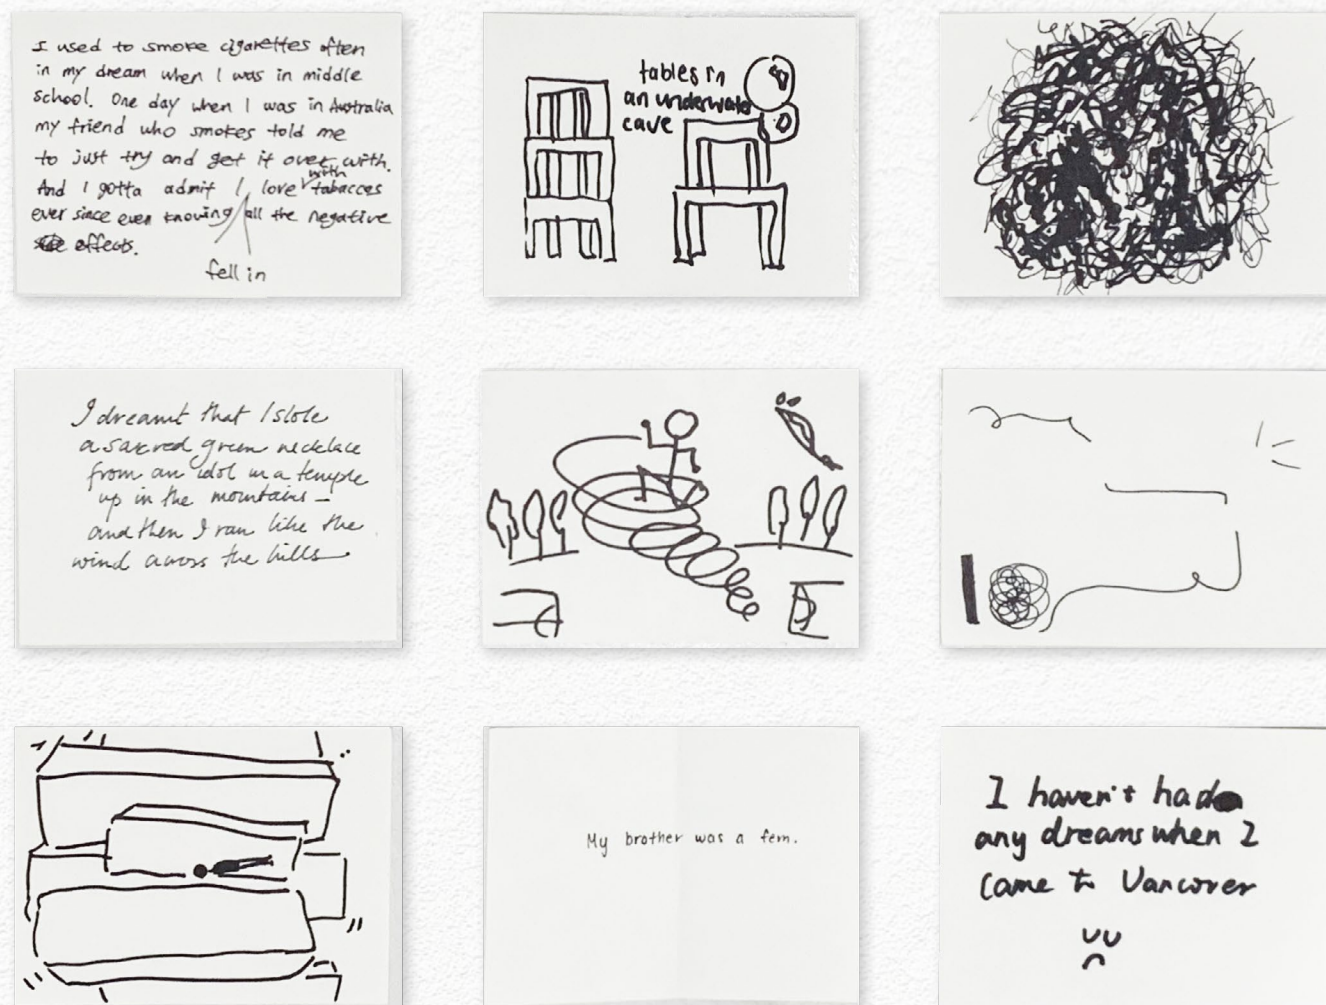 I used to smoke cigarettes often
in my dream when I was in middle
school. One day when I was in Australia
my friend who smokes told me
to just try and get it over with.
And I gotta admit I love with tabaccos
ever since even knowing all the negative
effects.
fell in
tables in
an underwater
cave
I dreamt that I stole
a sacred green necklace
from an idol in a temple
up in the mountains –
and then I ran like the
wind across the hills
My brother was a fem.
I haven't had
any dreams when I
came to Vancover